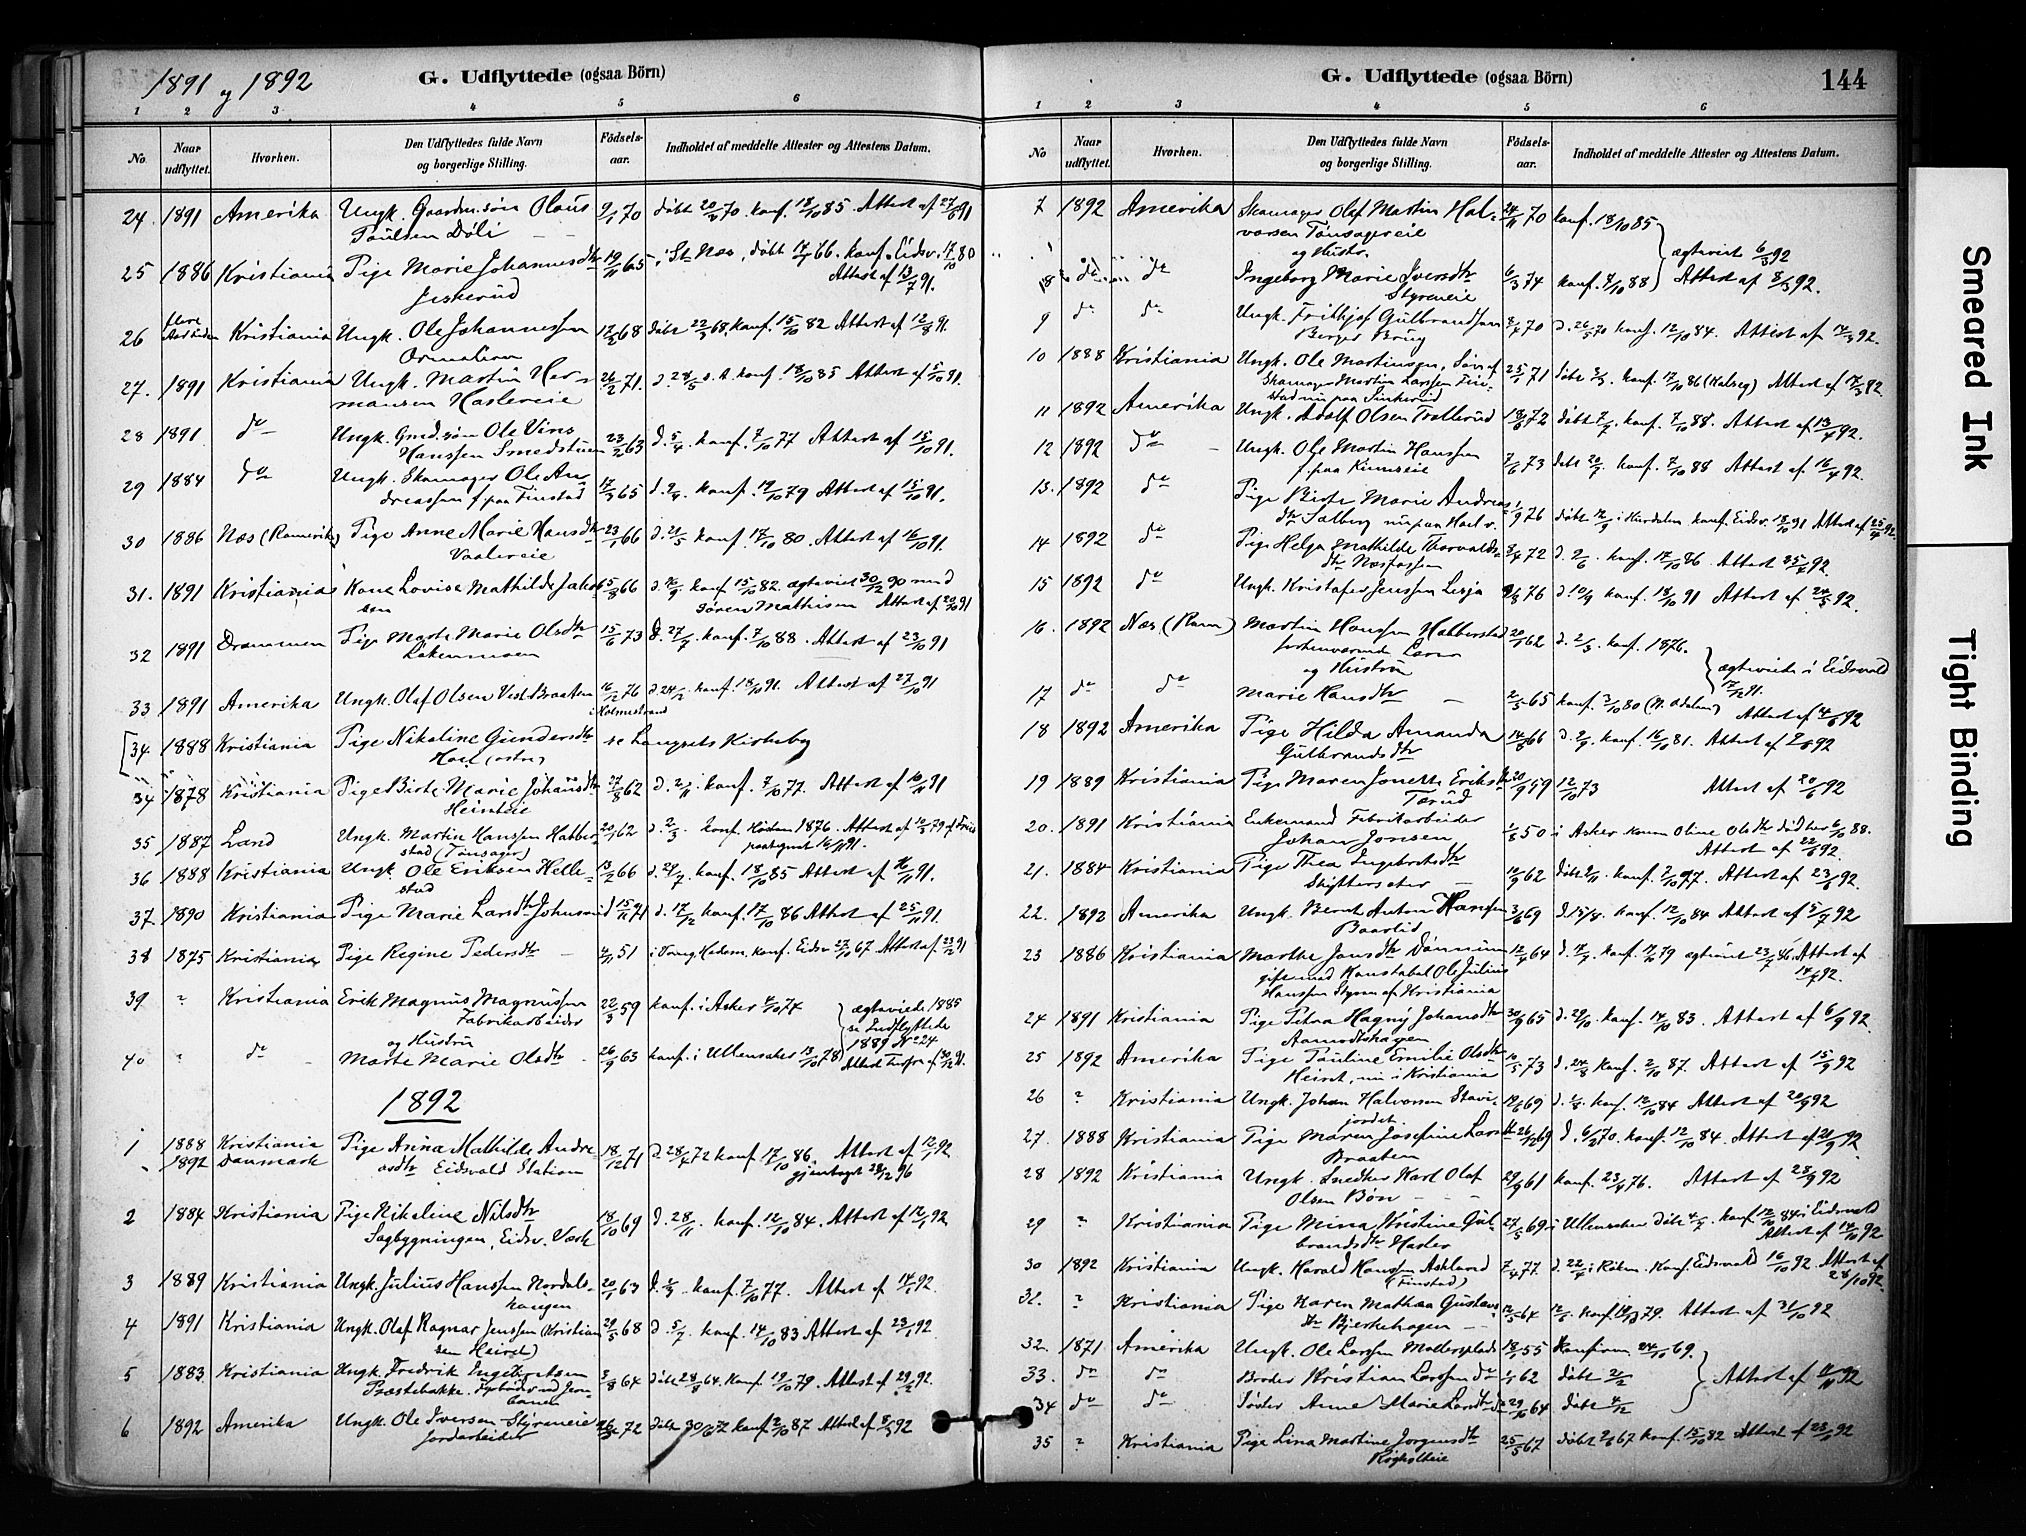 1891 og 1892
G. Udflyttede (ogsaa Börn)
1 2 3 4 5 6
No.
Naar udflyttet.
Hvorhen.
Den Udflyttedes fulde Navn og borgerlige Stilling.
Födsels-aar.
Indholdet af meddelte Attester og Attestens Datum.
24. 1891 Amerika Ungk. Gaardm.søn Olaus 9/1 70 døbt 20/3 70. konf. 18/10 85 Attest af 27/6 91
Paulsen Døli
25 1886 Kristiania Pige Marie Johannesdtr 19/11 65 i St. Næs, døbt 17/6 66. konf. Eidsv. 17/10 80
Attest af 13/7 91.
26 Kristiania Ungk. Ole Johannessen 68 døbt 22/3 68. konf. 15/10 82 Attest af 12/8 91.
27. 1891 Kristiania Ungk. Martin Her- 26/2 71. konf. 18/10 85 Attest af 5/10 91.
mansen Haslereie
28 1891 do Ungk. Gmd.søn Ole Vins 23/2 63 d. 5/4. konf. 7/10 77 Attest af 15/10 91.
Hanssen Smedstuen
29 1884 do Ungk. Skomager Ole An- 17/3 65 konf. 19/10 79 Attest af 15/10 91.
dreassen f. paa Finstad
30 1886 Næs (Romerike) Pige Anne Marie Hansdtr 23/1 66 d. 21/5 konf. 17/10 80. Attest af 16/10 91.
Vaalereie
31. 1891 Kristiania Kone Lovise Mathilde Jakob- 5/8 66 d. 16/9 konf 15/10 82. ægteviet 30/12 90 med
sen Søren Mathisen Attest af 20/10 91
32 1891 Drammen Pige Marte Marie Olsdtr 15/6 73 d. 27/7. konf. 7/10 88. Attest af 23/10 91
Løkenmoen
33 1891 Amerika Ungk. Olaf Olsen Vest.Braaten 16/2 76 d. 24/2. konf. 18/10 91. Attest af 27/10 91
i Holmestrand
[34 1888 Kristiania Pige Nikoline Gundersdtr se Langsets Kirkebog
Hoel (østre)
34 1878 Kristiania Pige Birte Marie Johansdtr 27/8 62 d. 2/11. konf. 7/10 77. Attest af 10/11 91
Heimteie
35 1887 Land Ungk. Martin Hanssen Habber- 20/1 62 d. 2/3. konf. Høsten 1876. Attest af 12/3 79 af
stad (Tønsager) paategnet 16/11 91.
36 1888 Kristiania Ungk. Ole Eriksen Helle- 13/2 66 d. 29/7. konf. 18/10 85 Attest af 16/11 91.
stad
37. 1890 Kristiania Pige Marie Larsdtr Johnsrud 15/11 71 d. 17/12. konf. 17/10 86 Attest af 25/11 91.
38 1875 Kristiania Pige Regine Pedersdtr 4/11 51 konf. Eidsv 27/10 67 Attest af 23/12 91
39 " Kristiania Erik Magnus Magnussen 22/3 59 konf. i Asker 4/10 74 ægteviede 1885
Fabrikarbeider se Indflyttede
og Hustru 1889 No 224
40 " do Marte Marie Olsdtr 26/9 63 konf. i Ullensaker 13/10 78 Attest af 30/12 91.
1892
1 1888 Kristiania Pige Anna Mathilde Andre- 18/12 71 d 28/4 72 konf 17/10 86. Attest af 12/1 92
1892 Danmark asdtr Eidsvold Station gjentaget 28/12 96
2 1884 Kristiania Pige Nikoline Nilsdtr 18/10 69 d. 28/11. konf. 12/10 84. Attest af 12/1 92
Sagbygningen, Eidsv. Værk
3 1889 Kristiania Ungk. Julius Hanssen Nordals- 20/1 63 konf. 7/10 77. Attest af 14/1 92.
haugen
4 1891 Kristiania Ungk. Olaf Ragnar Jenssen (Kristian- 29/5 68 d. 5/7. konf. 14/10 83 Attest af 23/1 92.
sen Heiret)
5 1883. Kristiania Ungk. Fredrik Engebretsen 3/8 64 døbt 28/8 64. konf. 19/10 79. Attest af 29/2 92.
Præstebakke. Fyrbøder ved Jern-
banen
6 1892 Amerika Ungk. Ole Iversen Styreneie 72 døbt 72 konf 2/10 87 Attest af 8/3 92
Jordarbeider
G. Udflyttede (ogsaa Börn)
144
1 2 3 4 5 6
No
Naar udflyttet.
Hvorhen.
Den Udflyttedes fulde Navn og borgerlige Stilling.
Födsels-aar.
Indholdet af meddelte Attester og Attestens Datum.
7 1892 Amerika Skomager Olaf Martin Hal- 24/11 70 konf. 18/10 85
vorsen Tønsagereie
og Hustr. ægteviet 6/3 92
8 do do Ingeborg Marie Iversdtr 6/3 74 konf. 7/10 88 Attest af 8/3 92.
Styreneie
9 do do Ungk. Frithjof Gulbrandsen 70 d. 26/5 70 konf. 12/10 84. Attest af 14/3 92.
Berger Brug
10 1888 Kristiania Ungk. Ole Martinsen, Søn af 25/1 71 døbt konf. 17/10 86 Attest af 17/3 92
Skomager Martin Larssen Fin-
stad nu paa Sinkerud
11 1892 Amerika Ungk. Adolf Olsen Trollerud 18/6 72 døbt 7/7. konf. 7/10 88. Attest af 13/4 92.
12 1892 do Ungk. Ole Martin Hanssen 7/6 73 døbt 20/7. konf. 7/10 88 Attest af 16/4 92.
f. paa Kumseie
13. 1892 do Pige Birte Marie Andreas- 1/9 76 døbt 17/9 i Hurdalen konf. Eidsv. 18/10 91 Attest af 25/4 92.
dtr Solberg nu paa Hoel v.
14 1892 do Pige Helga Mathilde Thorvalds- 3/4 72 d. 2/6. konf. 17/10 86. Attest 25/4 92.
dtr Næsfossen
15 1892 do Ungk. Kristofer Jenssen Lesja 76 d. 10/9 konf. 18/10 91 Attest af 24/5 92.
16. 1892 Næs (Rom) Martin Hanssen Habberstad 20/1 62 d. 2/3. konf. 1876.
forhenværende Lærer ægteviede i Eidsvold
og Hustru 91.
17 do do Marie Hansdtr 2/5 65 konf. 3/10 80 (N. Odalen) Attest af 4/6 92
18 1892 Amerika Pige Hilda Amanda 14/8 66 d. 2/9. konf. 16/10 81. Attest af 92
Gulbrandsdtr
19 1889 Kristiania Pige Maren Jonette Eriksdtr 20/9 59 12/10 73 Attest af 20/6 92
Tærud
20. 1891 Kristiania Enkemand Fabrikarbeider 1/8 50 i Asker konen Oline Olsdtr død her 6/10 88.
Johan Jonsen Attest af 22/6 92.
21. 1884 Kristiania Pige Thea Ingebretsdtr 14/9 62 døbt 2/11. konf. 7/10 77. Attest af 23/6 92.
Skytterseter
22. 1892 Amerika Ungk. Bernt Anton Hanssen 3/3 69 d 15/4. konf. 12/10 84 Attest af 5/7 92
Baarlid
23 1886 Kristiania Marthe Jonsdtr Dønnum 12/4 64 d. 17/7. konf. 19/10 79 ægteviet 23/7 86 Attest af
gift med Konstabel Ole Julius 14/7 92.
Hanssen Styren af Kristiania
24 1891 Kristiania Pige Petra Hagny Johansdtr 30/9 65 d. 29/10. konf. 14/10 83. Attest af 6/9 92.
Aamodtshagen
25 1892 Amerika Pige Pauline Emilie Olsdtr 10/5 73 d. 24/8 konf. 2/10 87. Attest af 15/9 92
Heiret, nu i Kristiania
26 ? Kristiania Ungk. Johan Halvorsen Stavi- 69 konf. 12/10 84 Attest af 20/9 92
jordet
27. 1888 Kristiania Pige Maren Josefine Larsdtr 26/12 69 d. 6/2 70. konf. 12/10 84. Attest af 21/9 92.
Braaten
28 1892 Kristiania Ungk. Snedker Karl Olaf 29/9 61 konf. 23/4 76. Attest af 28/9 92
Olsen Bøn
29 ? Kristiania Pige Mina Kristine Gul- 27/5 69 i Ullensaker døbt 4/7. konf 12/10 84 i Eidsvold
brandsdtr Hasler Attest af 14/10 92
30 1892 Kristiania Ungk. Harald Hanssen Askland 7/4 77 d. 22/4 i Røken. konf. Eidsvold 16/10 92. Attest af
(Finstad) 28/10 92.
31. ? Kristiania Pige Karen Mathea Gustavs- 12/5 64 konf. 19/10 79. Attest af 31/10 92
dtr Bjerkehagen
32. 1871 Amerika Ungk. Ole Larssen Mollersplads 18/1 55 Konfirm. 24/10 69.
33. do do Broder Kristian Larssen do 62 døbt 2/2 Attest af 11/11 92
34 do do Søster Anne Marie Larsdtr do 29/10 64 døbt 4/12
35 ? Kristiania Pige Lina Martine Jorgensdtr 25/5 67 døbt 67 konf. 15/10 82 Attest af 28/11 92
Rogholteie
Smeared Ink
Tight Binding